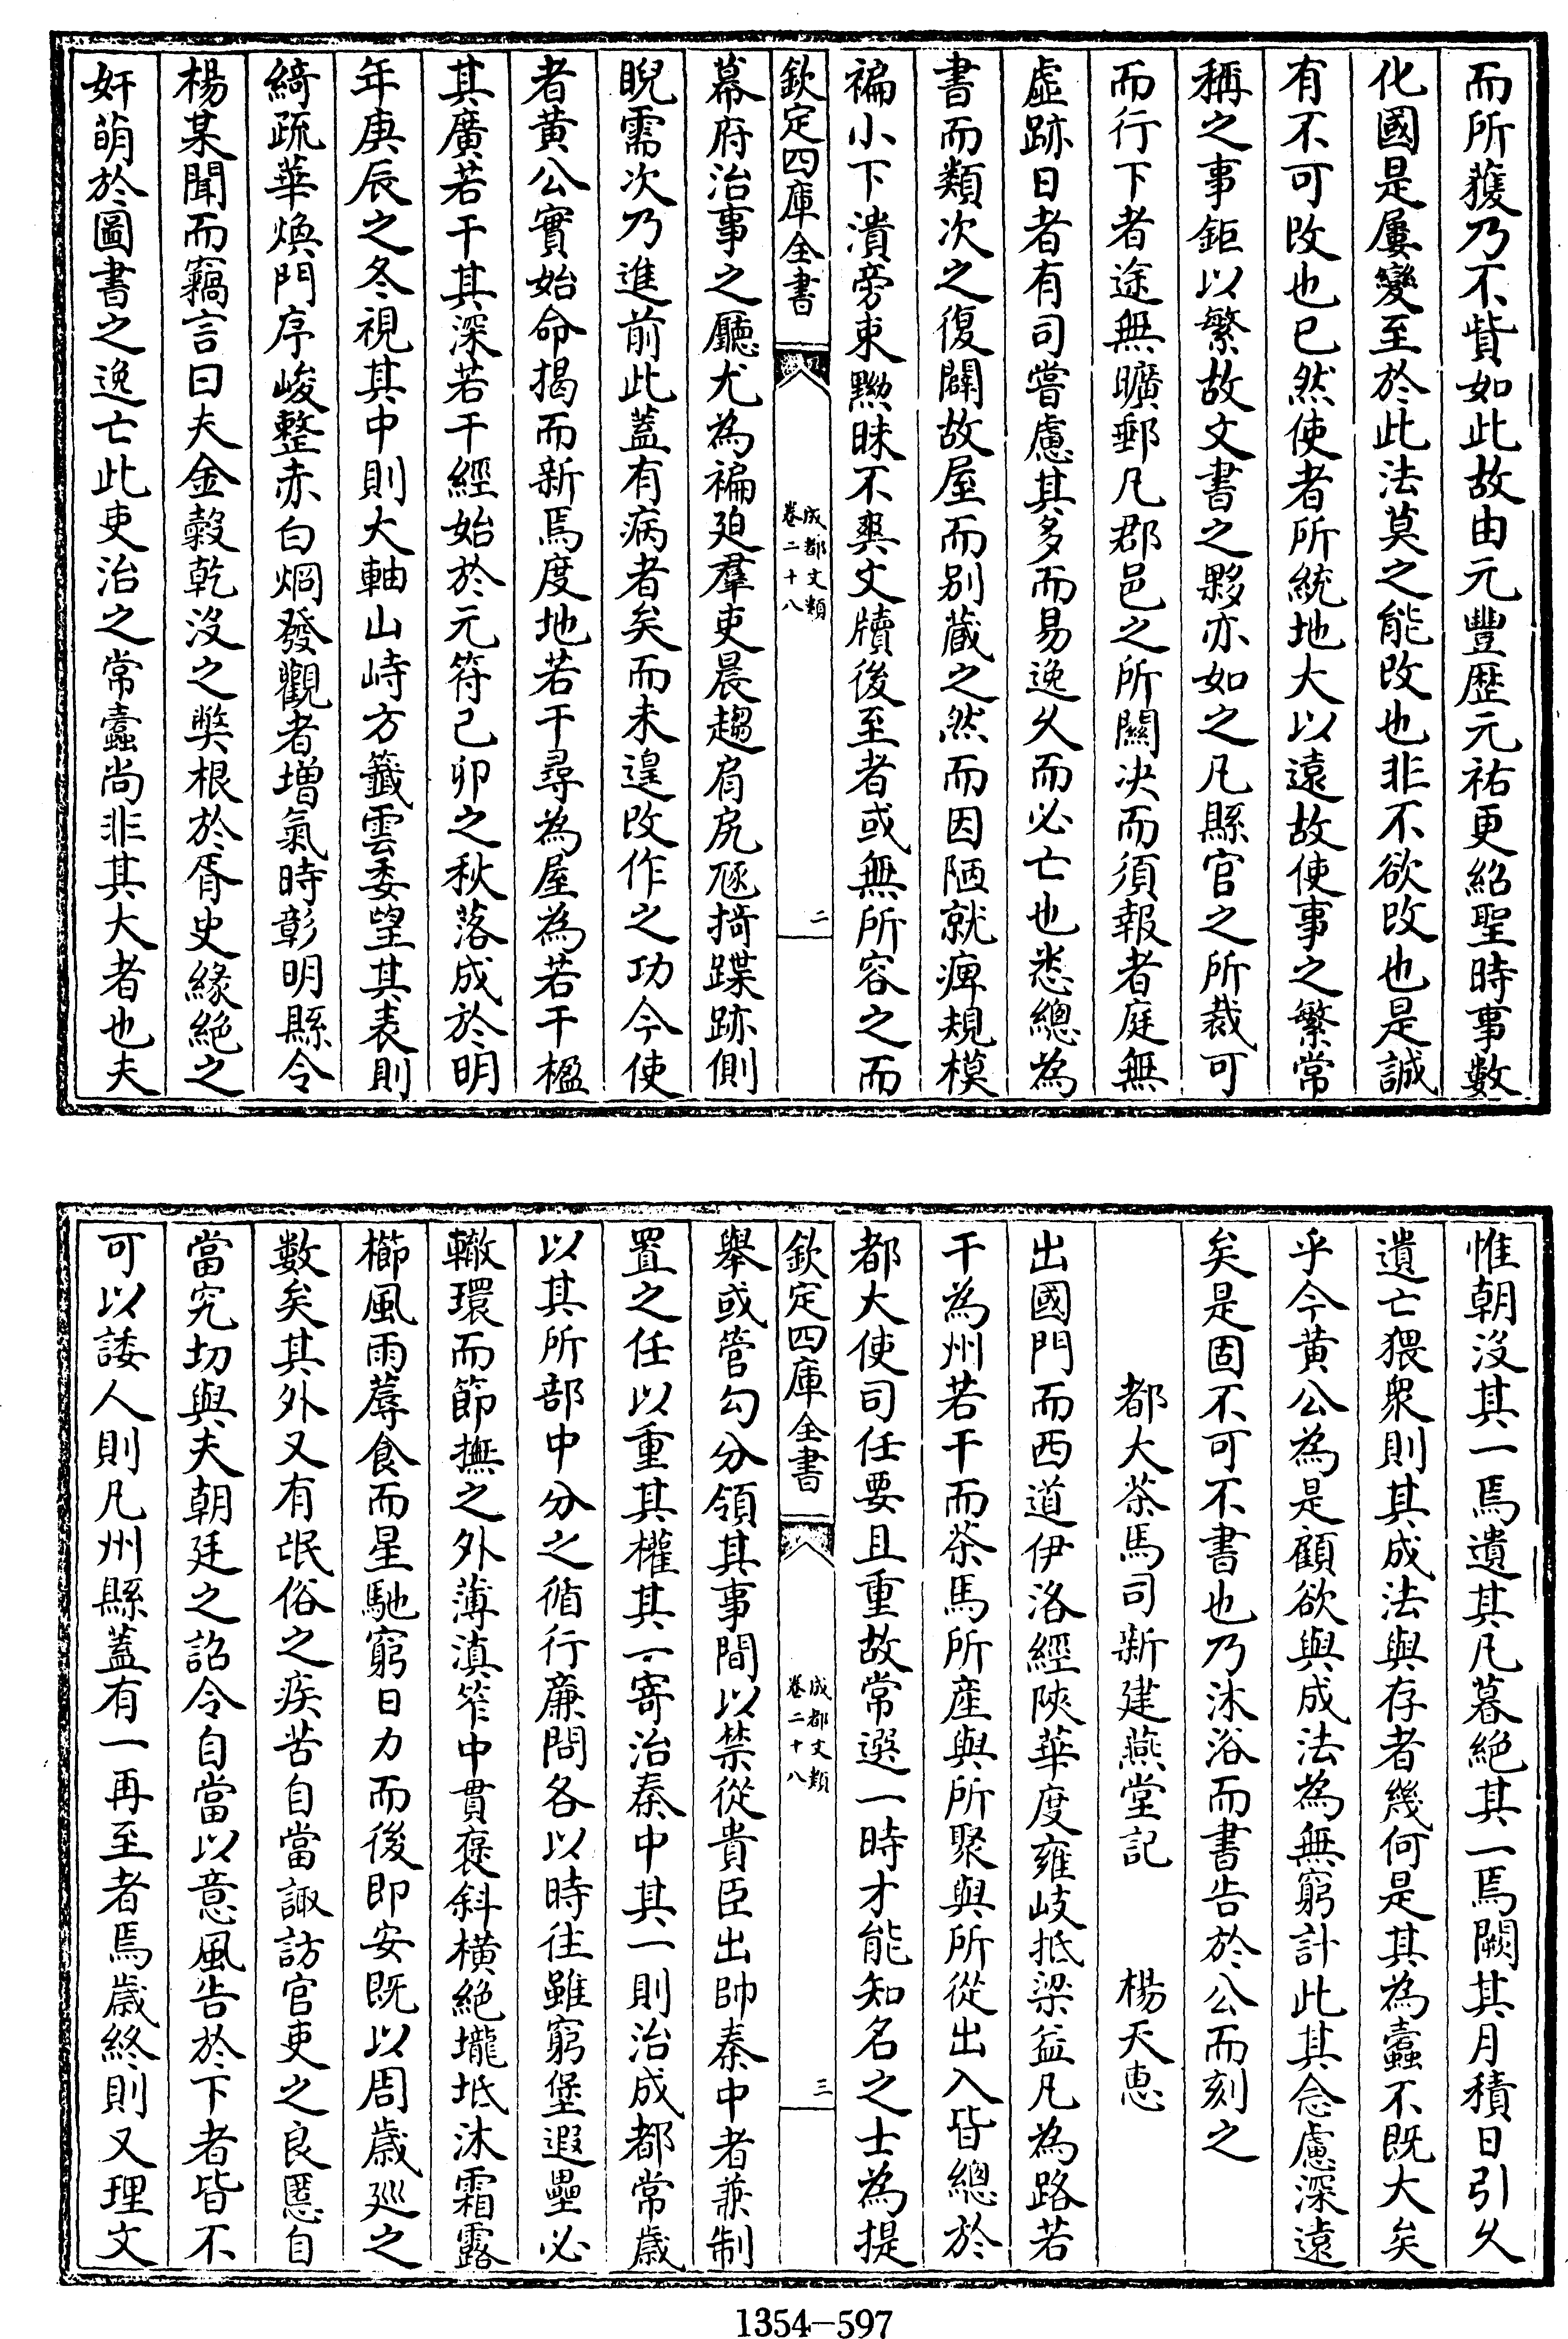 而所獲乃不貲如此故由元豐歷元祐更紹聖時事數
化國是屢變至於此法莫之能改也非不欲改也是誠
有不可改也已然使者所統地大以遠故使事之繁常
稱之事鉅以繁故文書之夥亦如之凡縣官之所裁可
而行下者途無曠郵凡郡邑之所關决而須報者庭無
虛跡日者有司嘗慮其多而易逸久而必亡也悉總為
書而類次之復闢故屋而别藏之然而因陋就痺規模
褊小下潰旁束黝昧不爽文牘後至者或無所容之而
欽定四庫全書
成都文類
卷二十八
二
幕府治事之廳尤為褊廹羣吏晨趨肩尻𡯓掎蹀跡側
睨需次乃進前此蓋有病者矣而未遑改作之功今使
者黄公實始命揭而新焉度地若干尋為屋為若干楹
其廣若干其深若干經始於元符己卯之秋落成於明
年庚辰之冬視其中則大軸山峙方籤雲委望其表則
綺疏華煥門序峻整赤白烱發觀者增氣時彰明縣令
楊某聞而竊言曰夫金穀乾没之獘根於胥史緣絶之
奸萌於圖書之逸亡此吏治之常蠹尚非其大者也夫
惟朝没其一焉遺其凡暮絶其一焉闕其月積日引久
遺亡猥衆則其成法與存者幾何是其為蠹不既大矣
乎今黄公為是顧欲與成法為無窮計此其念慮深遠
矣是固不可不書也乃沐浴而書告於公而刻之
都大茶馬司新建燕堂記 楊天惠
出國門而西道伊洛經陜華度雍岐抵梁益凡為路若
干為州若干而茶馬所産與所聚與所從出入皆總於
都大使司任要且重故常選一時才能知名之士為提
欽定四庫全書
成都文類
卷二十八
三
舉或管勾分領其事間以禁從貴臣出帥秦中者兼制
置之任以重其權其一寄治秦中其一則治成都常歲
以其所部中分之循行亷問各以時往雖窮堡遐壘必
轍環而節撫之外薄滇笮中貫褒斜横絶壠坻沐霜露
櫛風雨蓐食而星馳窮日力而後即安既以周歲廵之
数矣其外又有氓俗之疾苦自當諏訪官吏之良慝自
當究切與夫朝廷之詔令自當以意風告於下者皆不
可以諉人則凡州縣蓋有一再至者焉歲終則又理文
1354-597